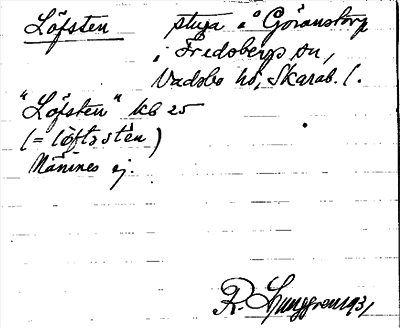 Löfsten stuga i Göranstorp
i Fredsbergs sn,
Vadsbo hd, Skarab. l.
"Löfsten" kb 25
(= löftәstén)
Nämnes ej.
R. Ljunggren 1931